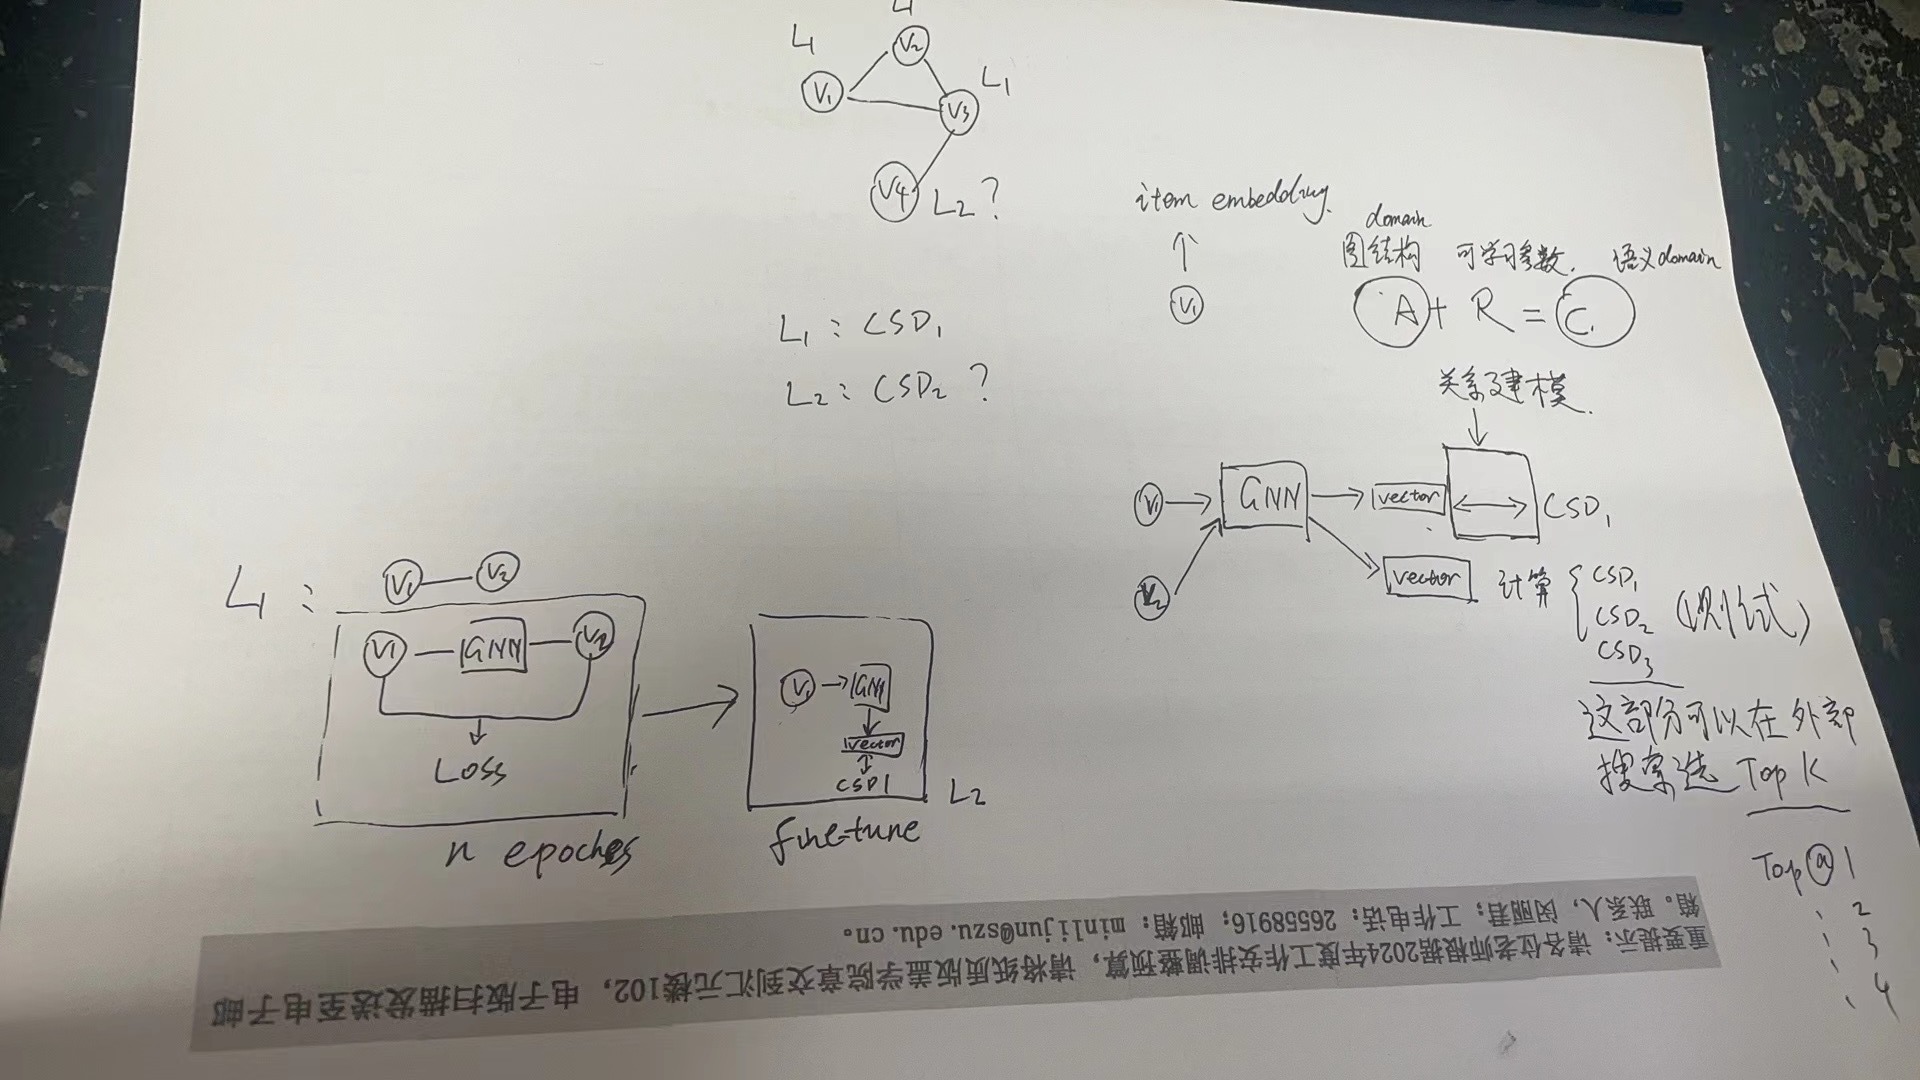 L1
L1
V2
L1
V1
V3
V4
L2?
item embedding.
domain
图结构
可学习参数.
语义domain
V1
A + R = C.
L1: CSD1
L2: CSD2 ?
关系建模.
V1
GNN
vector
CSD1
V2
vector
计算
CSD1
CSD2
CSD3
这部分可以在外部
搜索选 Top K
Top@1
2
3
4
L1:
V1
V2
V1
GNN
V2
Loss
n epoches
V1
GNN
vector
CSD1
L2
fine-tune
重要提示：请各位老师根据2024年度工作安排调整预算，请将纸质版盖学院章交到汇元楼102，电子版扫描发送至电子邮
箱。联系人，闵丽君；工作电话：26558916；邮箱：minlijun@szu.edu.cn。